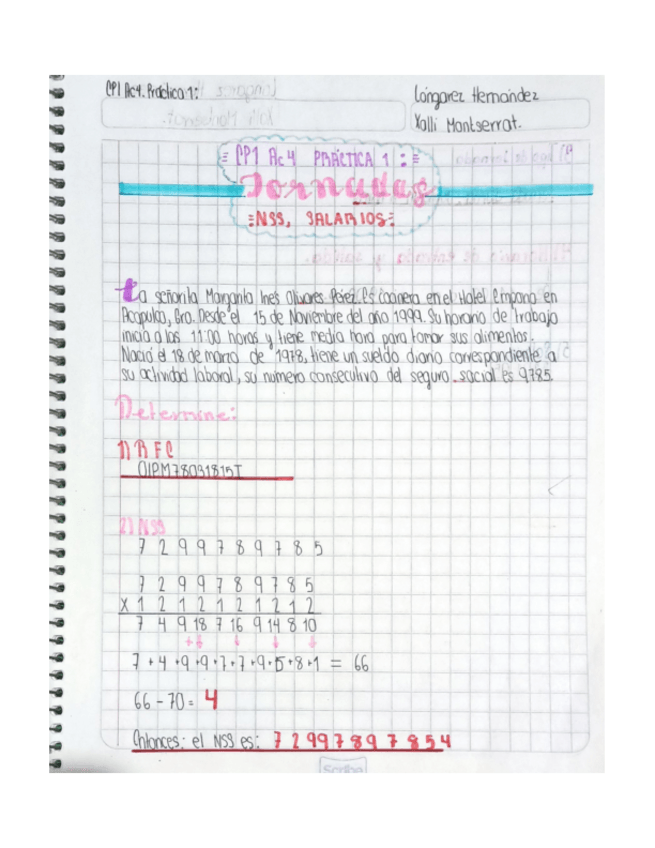 CP1 Ac4. Práctica 1:
Longarez Hernandez
Xalli Montserrat.
CP1 Ac4 PRÁCTICA 1:
Jornadas
NSS, SALARIOS
La señorita Margarita Inés Olivares Pérez. Es cocinera en el Hotel Emporio en
Acapulco, Gro. Desde el 15 de Noviembre del año 1999. Su horario de trabajo
inicia a las 11:00 horas y tiene media hora para tomar sus alimentos.
Nació el 18 de marzo de 1978, tiene un sueldo diario correspondiente a
su actividad laboral, su numero consecutivo del seguro social es 9785.
Determine:
1) RFC
OIPM78031815T
2) NSS
7 2 9 9 7 8 9 7 8 5
7 2 9 9 7 8 9 7 8 5
X 1 2 1 2 1 2 1 2 1 2
7 4 9 18 7 16 9 14 8 10
7 + 4 + 9 + 9 + 7 + 7 + 9 + 5 + 8 + 1 = 66
66 - 70 = 4
Entonces: el NSS es: 7 2 9 9 7 8 9 7 8 5 4
Scribe